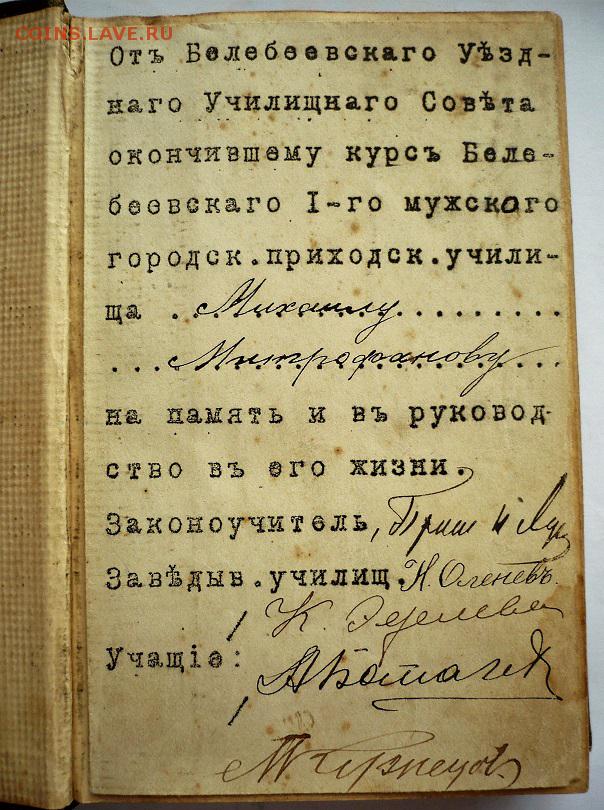 COINS.LAVE.RU
Отъ Белебеевскаго Уѣзд-
наго Училищнаго Совѣта
окончившему курсъ Беле-
беевскаго I-го мужского
городск.приходск.учили-
ща ..Михаилу..........
...Митрофанову...
на память и въ руковод-
ство въ его жизни.
Законоучитель,
Завѣдыв.училищ. Н. Оленевъ.
/ К.
Учащіе:
/